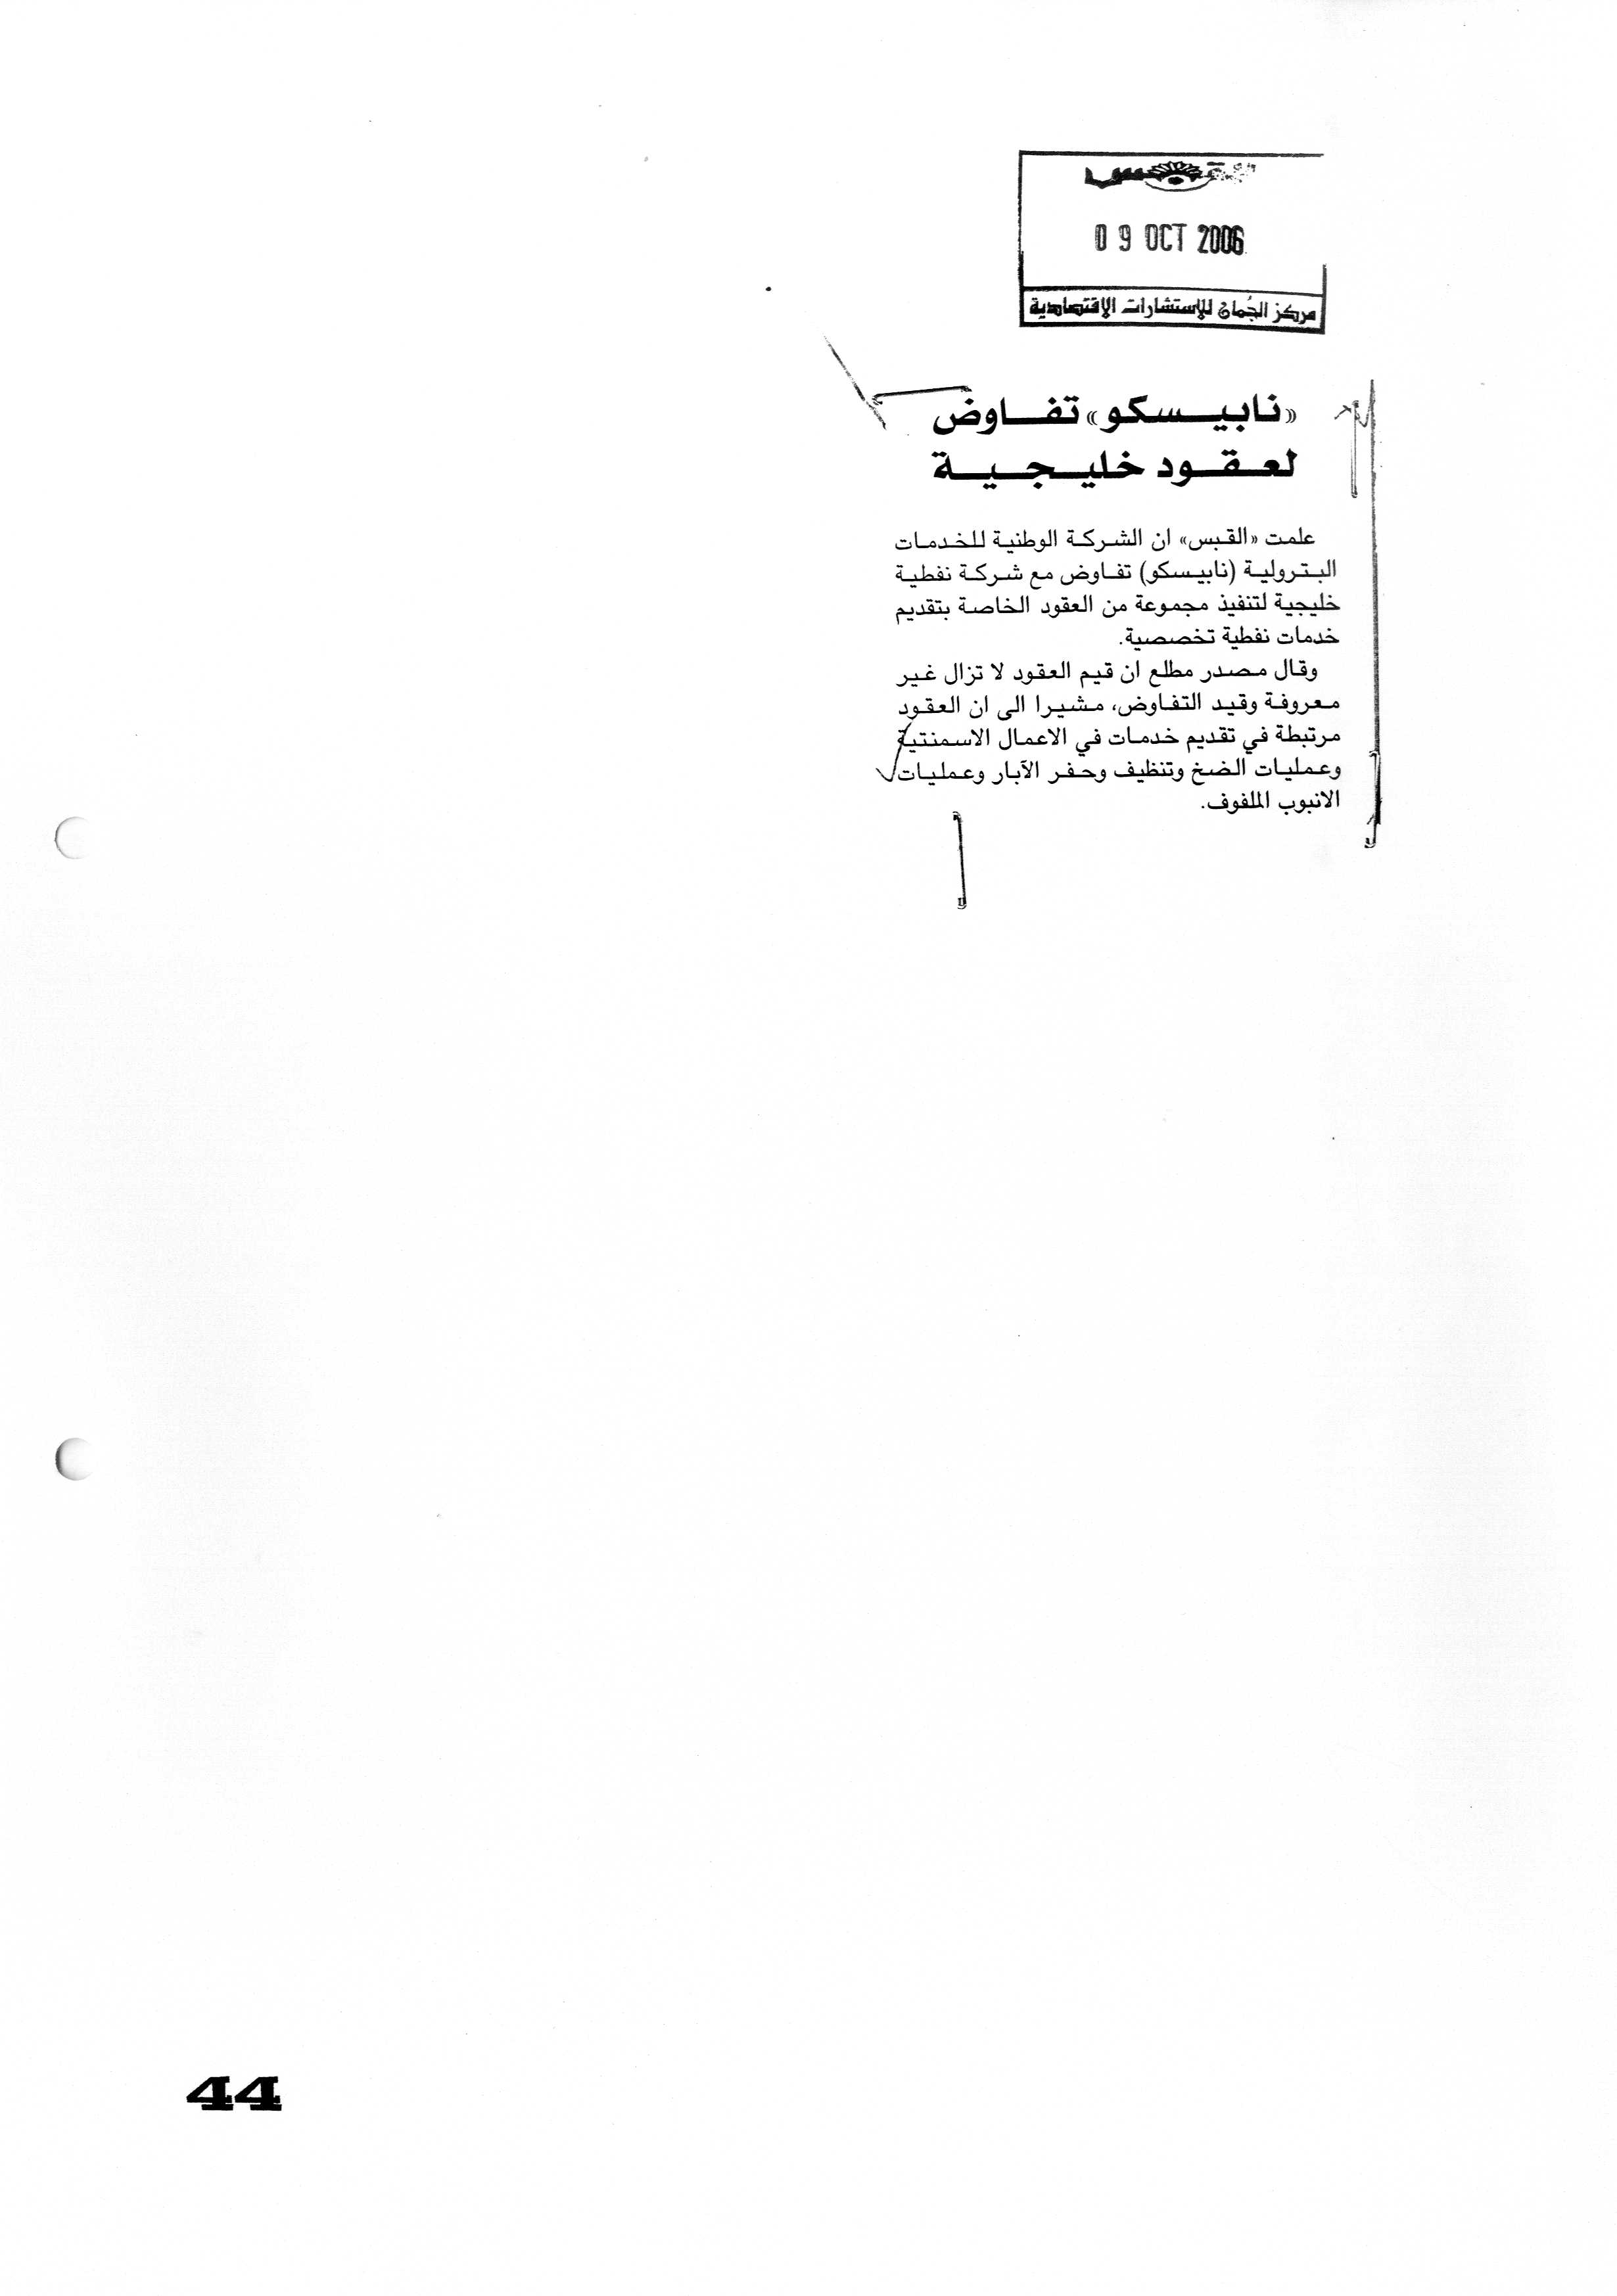 القبس
09 OCT 2006
مركز الجُمان للإستشارات الإقتصادية
«نابيسكو» تفاوض
لعقود خليجية
علمت «القبس» ان الشركة الوطنية للخدمات
البترولية (نابيسكو) تفاوض مع شركة نفطية
خليجية لتنفيذ مجموعة من العقود الخاصة بتقديم
خدمات نفطية تخصصية.
وقال مصدر مطلع ان قيم العقود لا تزال غير
معروفة وقيد التفاوض، مشيرا الى ان العقود
مرتبطة في تقديم خدمات في الاعمال الاسمنتية
وعمليات الضخ وتنظيف وحفر الآبار وعمليات
الانبوب الملفوف.
44